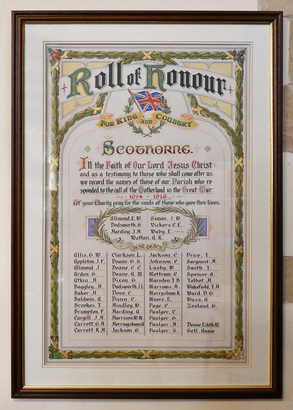 Roll of Honour
FOR KING AND COUNTRY
SCOTHORNE.
In the Faith of Our Lord Jesus Christ
and as a testimony to those who shall come after us
we record the names of those of our Parish who re-
sponded to the call of the Motherland in the Great War.
1914 - 1918
Of your Charity pray for the souls of those who gave their lives.
Allmond E.W. Simon J.W.
Dodsworth G. Vickers C.E.
Harding J.H. Waby E.
Walton A.R.
Allis G.W. Clarkson L. Jackson C. Price T.
Appleton J.F. Deane G.S. Johnson E. Sargeant M.
Allmond J. Deane C. Lanby W. Smith T.
Arden G. Deane Mattram C. Spencer A.
Atkin M. Dixon G. Marsden T.B. Talbot M.
Baggley M. Dodsworth H. Marfleet T. Wakefield J.H.
Baker M. Dove C. Merryshaw Ward D.G.
Baldwin A. Dunn C. Moore E. Wass A.
Brooks T. Hindley W. Page C. Zealand G.
Brumpton F. Harding A. Paulger G.
Cargill J.H. Harrison W.H. Paulger M.
Garrott G.H. Merryshaw Paulger J. Deane Edith M.
Garrott R.H. Jackson G. Paulger S. Gell Annie